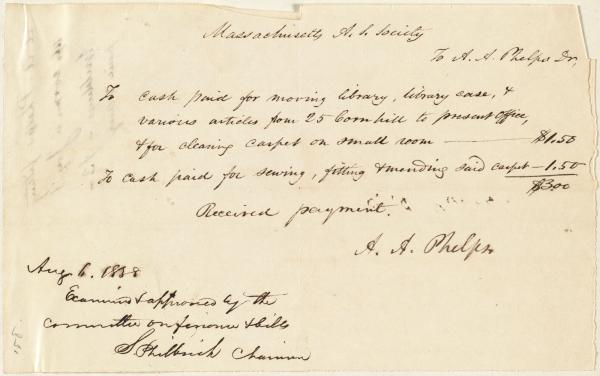 Massachusetts A. S. Society
To A. A. Phelps Dr,
To cash paid for moving library, library case, &
various articles from 25 Cornhill to present office,
& for cleaning carpet on small room — $1.50
To cash paid for sewing, fitting & mending said carpet — 1.50
$3.00
Received payment.
A. A. Phelps
Aug 6. 1838
Examined & approved by the
committee on finance & bills
S Philbrick Chairman